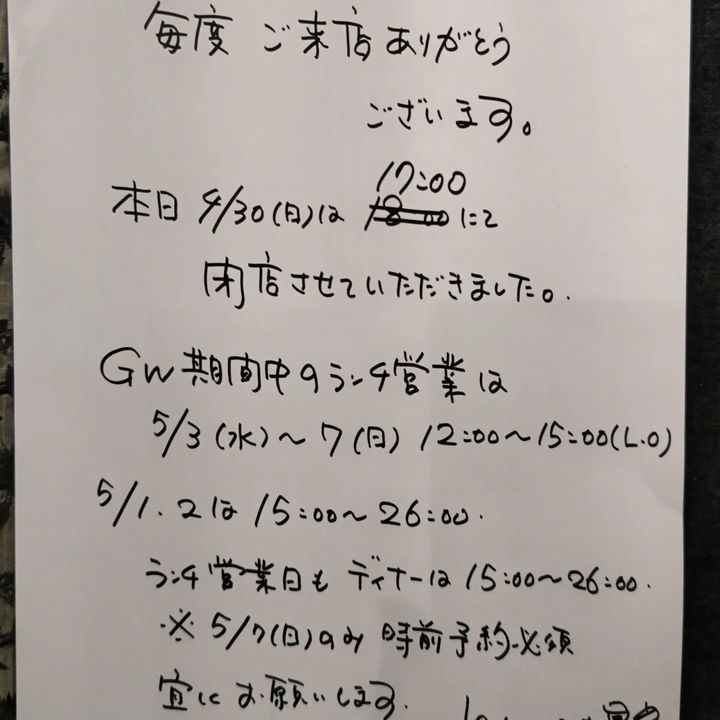 毎度 ご来店ありがとう
ございます。
17:00
本日 4/30(日)は 18:00 にて
閉店させていただきました。
GW期間中のランチ営業は
5/3(水)〜7(日) 12:00〜15:00(L.O)
5/1.2は 15:00〜26:00.
ランチ営業日も ディナーは 15:00〜26:00.
※ 5/7(日)のみ 時前予約必須
宜にお願いします.